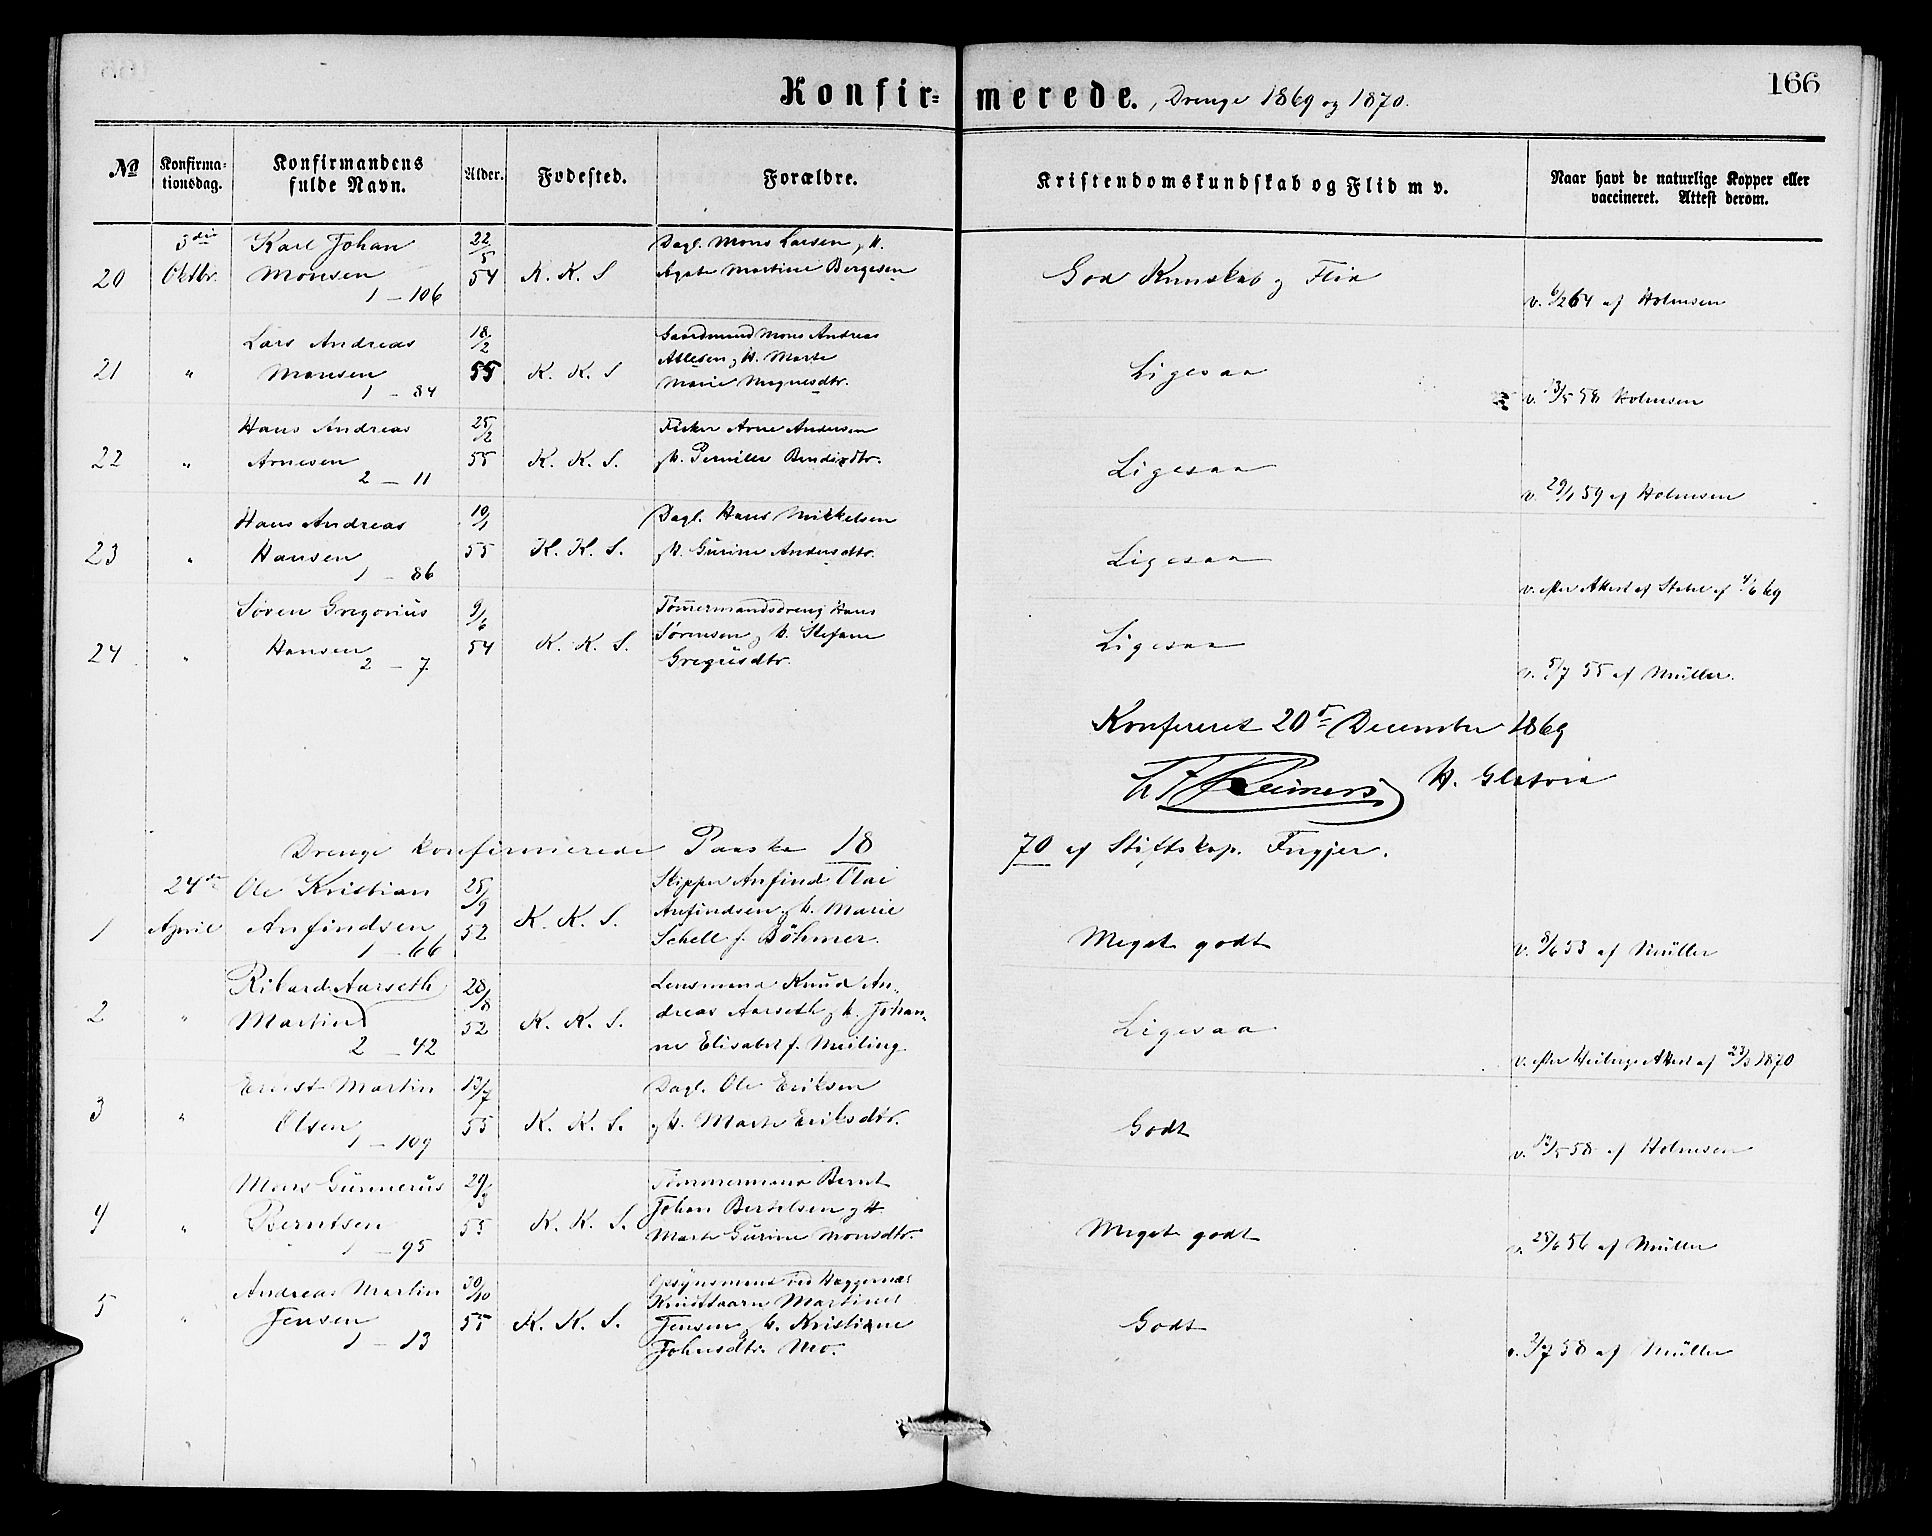 166
Konfir= merede. , Drenge 1869 og 1870.
No
Konfirma=
tionsdag.
Konfirmandens
fulde Navn.
Alder.
Fodested.
Forældre.
Kristendomskundskab og Flid m v.
Naar havt de naturlige Kopper eller
vaccineret. Attest derom.
20
3die
Oktbr.
Karl Johan
Monsen
1 — 106
22/5
54
K. K. S
Dagl. Mons Larsen og H.
Agate Martine Børgesen
God Kundskab og Flid
v. 6/2 64 af Holmsen
21
"
Lars Andreas
Monsen
1 — 84
18/2
55
K. K. S
Gaardmand Mons Andreas
Atlesen og H. Marte
Marie Magnesdtr.
Ligesaa
v. 13/5 58 Holmsen
22
"
Hans Andreas
Arnesen
2 — 11
25/2
55
K. K. S.
Fisker Arne Andersen
og H. Pernille Bendixdtr.
Ligesaa
v. 29/1 59 af Holmsen
23
"
Hans Andreas
Hansen
1 — 86
10/1
55
K. K. S.
Dagl. Hans Mikkelsen
og H. Gurine Andersdtr.
Ligesaa
v. efter Attest af 4/6 69
24
"
Søren Gregorius
Hansen
2 — 7.
9/6
54
K. K. S.
Tømermandsdreng Hans
Sørensen og H. Stefane
Gregusdtr.
Ligesaa
v. 5/7 55 af Müller.
Konfereret 20de December 1869
Reimers H. Glatved
Drenge konfirmerede Paaske 1870 af Stiftskap.
1
24de
April
Ole Kristian
Anfindsen
1 — 66
25/9
52
K. K. S.
Skipper Anfind Clai
Anfindsen og H. Marie
Schell f. Böhmer.
Meget godt
v. 8/6 53 af Müller
2
"
Rikard Aarseth
Martin
2 — 42
28/8
52
K. K. S.
Lensmand Knud An-
dreas Aarseth og H. Johan-
ne Elisabet f. Meiling
Ligesaa
v. efter Attest af 23/3 1870
3
"
Ernst Martin
Olsen
1 — 109
13/7
55
K. K. S.
Dagl. Ole Eriksen
og H. Marte Eriksdtr.
Godt
v. 13/5 58 af Holmsen
4
"
Mons Gunnerus
Berntsen
1 — 95
29/3
55
K. K. S.
Tømmermand Bernt
Johan Bertelsen og H.
Marte Gurine Monsdtr.
Meget godt
v. 25/6 56 af Müller
5
"
Andreas Martin
Jensen
1 — 13
30/10
55
K. K. S.
Opsynsmand ved
Martinus
Jensen og H. Kristiane
Johnsdtr. Mo.
Godt
v. 2/7 58 af Müller